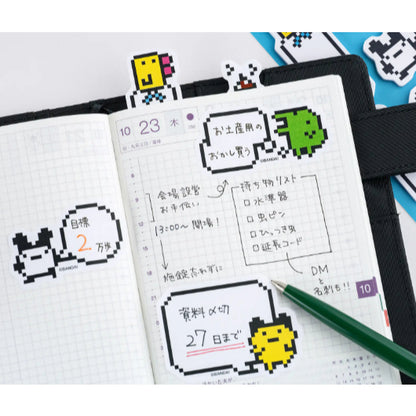 目標
2万歩
©BANDAI
10 23 木
お土産用の
おかし買う
©BANDAI
会場設営
お手伝い
13:00〜開場！
施錠忘れずに
持ち物リスト
□水準器
□虫ピン
□ひっつき虫
□延長コード
DM
と
名刺も!!
10
資料〆切
27日まで
©BANDAI